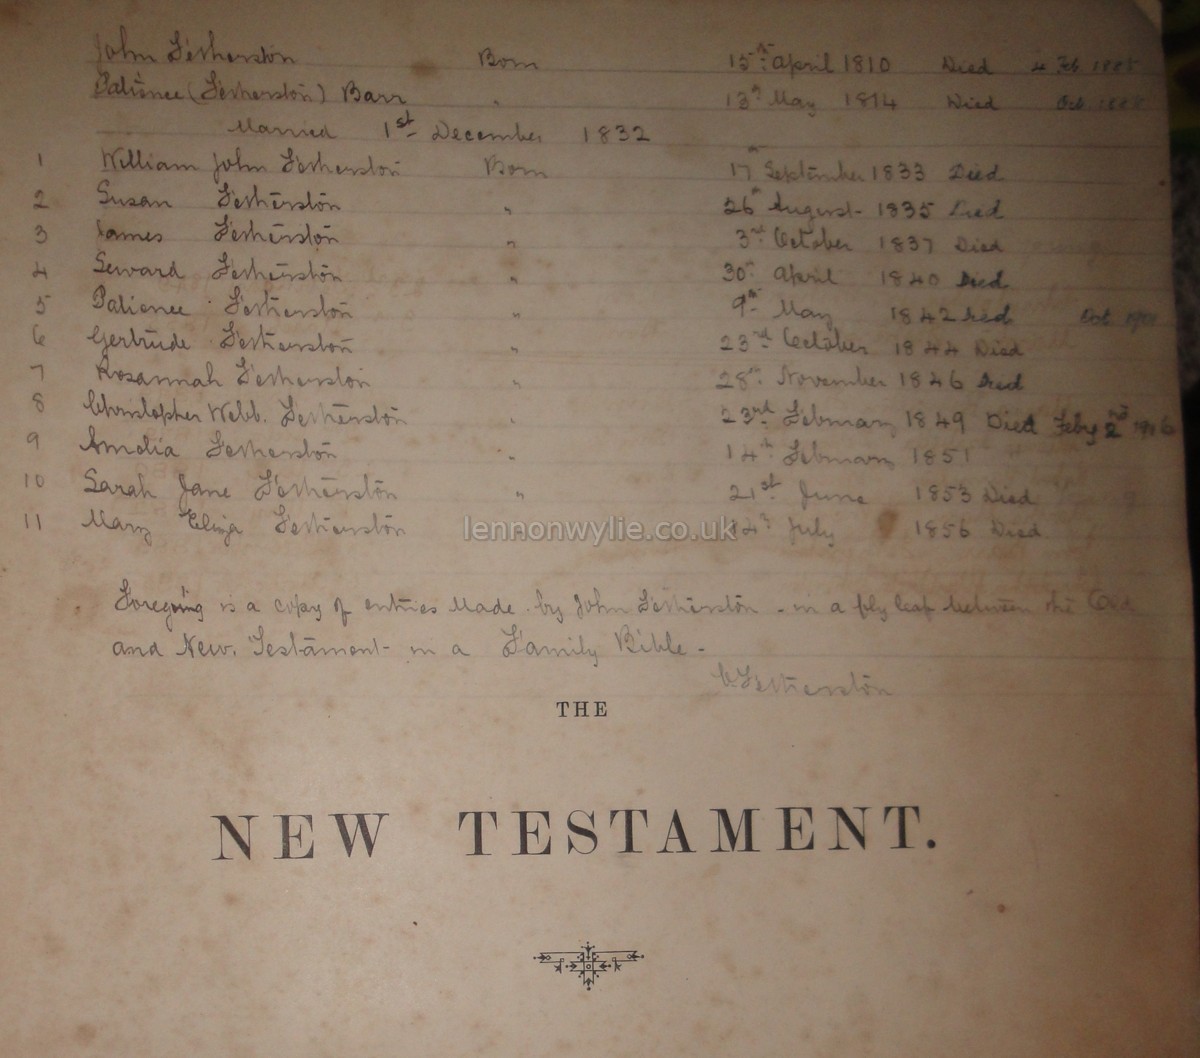 John Fetherston Born 15th April 1810 Died 4 Feb
Patience (Fetherston) Barr " 13th May 1814 Died Oct.
Married 1st December 1832
1 William John Fetherston Born 17th September 1833 Died
2 Susan Fetherston " 26th August 1835 Died
3 James Fetherston " 3rd October 1837 Died
4 Seward Fetherston " 30th April 1840 Died
5 Patience Fetherston " 9th May 1842 Died Oct
6 Gertrude Fetherston " 23rd October 1844 Died
7 Rosannah Fetherston " 28th November 1846 Died
8 Christopher Webb. Fetherston " 23rd February 1849 Died Feby 2nd
9 Amelia Fetherston " 14th February 1851
10 Sarah Jane Fetherston " 21st June 1853 Died
11 Mary Eliza Fetherston 14th July 1856 Died
lennonwylie.co.uk
Foregoing is a copy of entries Made by John Fetherston - in a fly leaf between the Old
and New. Testament - in a Family Bible -
C. Fetherston
THE
NEW TESTAMENT.